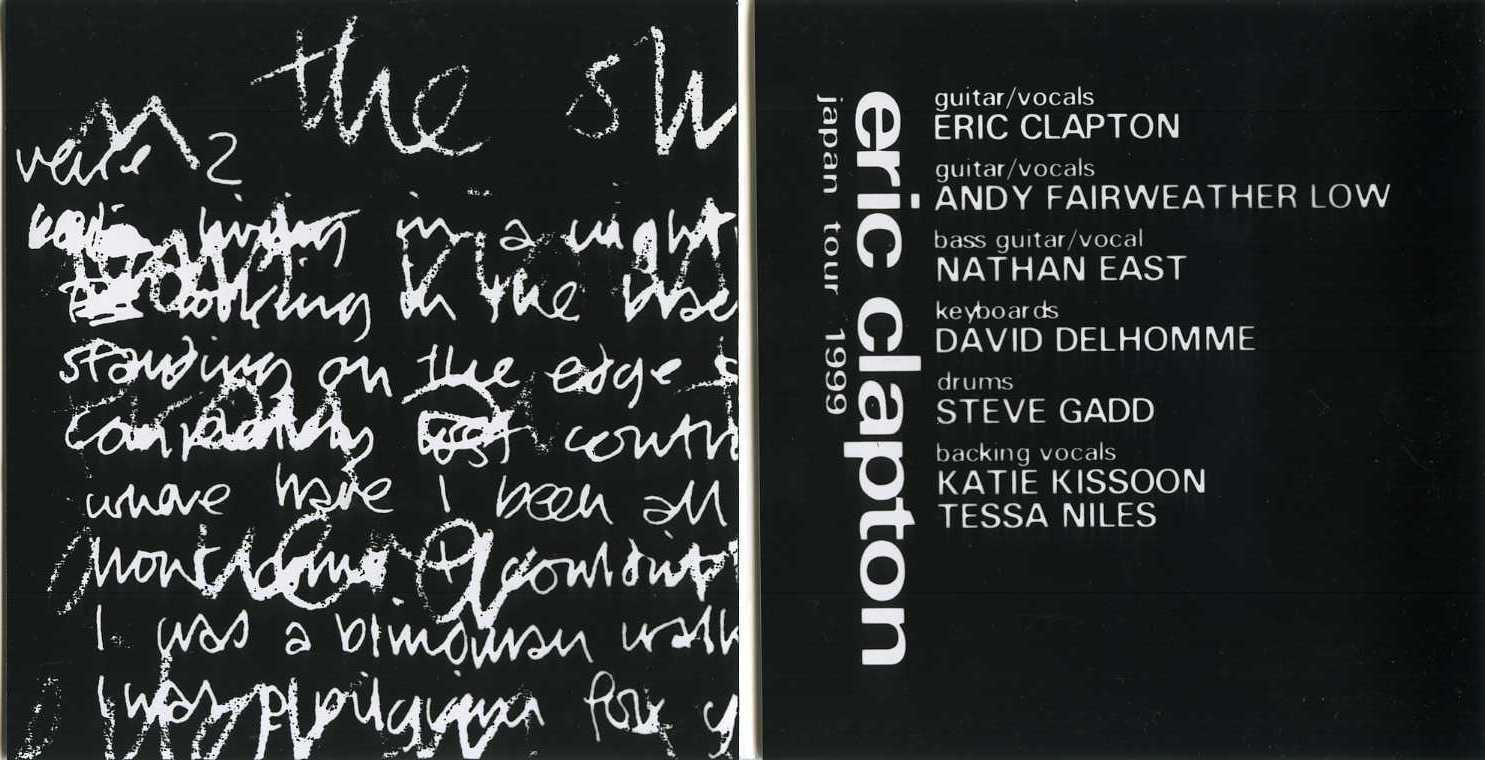 the sh
verse 2
living in a night
looking in the
standing on the edge
contr
where have I been all
I was a blindman walk
I was a pilgrim for
japan tour 1999
eric clapton
guitar/vocals
ERIC CLAPTON
guitar/vocals
ANDY FAIRWEATHER LOW
bass guitar/vocal
NATHAN EAST
keyboards
DAVID DELHOMME
drums
STEVE GADD
backing vocals
KATIE KISSOON
TESSA NILES